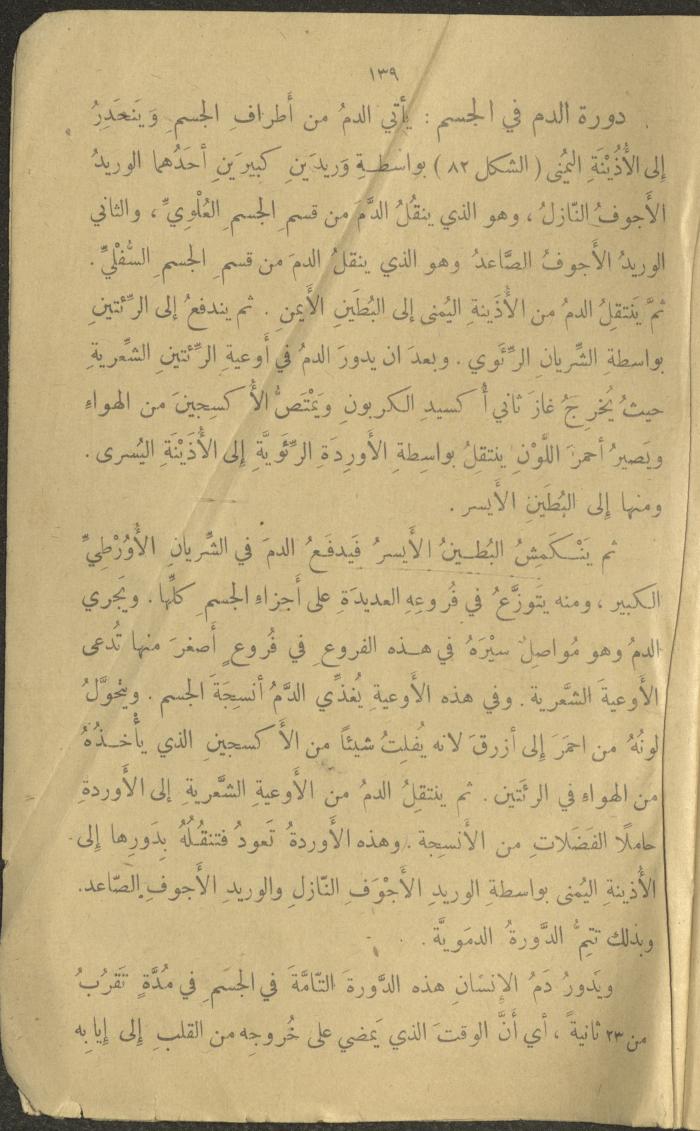 ١٣٩
دورة الدم في الجسم : يأتي الدمُ من أَطرافِ الجسمِ وَيَنحَدِرُ
إلى الأُذُيْنَةِ اليُمنى ( الشكل ٨٢ ) بواسطةِ وَريدَينِ كبيرَينِ أحَدُهما الوريدُ
الأَجوفُ النّازلُ ، وهو الذي ينقُلُ الدَّمَ من قسمِ الجسمِ العُلْوِيِّ ، والثاني
الوريدُ الأَجوفُ الصَّاعدُ وهو الذي ينقلُ الدمَ من قسمِ الجسمِ السُّفْليِّ .
ثمَّ يَنتقِلُ الدمُ من الأُذَينةِ اليُمنى إلى البُطَينِ الأَيمنِ . ثم يندفعُ إلى الرّئتينِ
بواسطةِ الشّريانِ الرّئَوي . وبعدَ ان يدورَ الدمُ في أَوعيةِ الرّئتينِ الشّعريةِ
حيثُ يُخرِجُ غازَ ثاني أُكسيدِ الكربونِ وَيَمْتَصُّ الأُكسِجينَ من الهواءِ
ويَصيرُ أحمرَ اللَّوْنِ ينتقِلُ بواسِطةِ الأَورِدَةِ الرّئَويَّةِ إلى الأُذَيْنَةِ اليُسرى .
ومنها إلى البُطَينِ الأَيسر .
ثم يَنْكَمِشُ البُطينُ الأَيسرُ فَيدفَعُ الدمَ في الشِّريانِ الأُوُرْطِيِّ
الكبير ، ومنه يَتَوزَّعُ في فُروعِهِ العديدَةِ على أَجزاءِ الجسمِ كلِّها . ويَجري
الدمُ وهو مُواصِلٌ سيْرَهُ في هذه الفروعِ في فُروعٍ أَصغرَ منها تُدعى
الأَوعيةَ الشَّعرية . وفي هذه الأَوعيةِ يُغذّي الدَّمُ أنسِجَةَ الجسم . ويتحوَّلُ
لونُهُ من احمَرَ إلى أزرقَ لانه يُفلِتُ شيئاً من الأَكسجينِ الذي يأْخذُهُ
من الهواءِ في الرئَتين . ثم ينتقِلُ الدمُ من الأَوعيةِ الشَّعريةِ إلى الأَوردةِ
حاملًا الفَضَلاتِ من الأَنسِجة . وهذه الأَوردةُ تَعودُ فتنقُلُهُ بِدَورِها إلى
الأُذينةِ اليُمنى بواسطةِ الوريدِ الأَجْوَفِ النّازلِ والوريدِ الأَجوفِ الصّاعد.
وبذلك تتمُّ الدَّورةُ الدمَويَّة .
ويَدورُ دَمُ الإنسانِ هذه الدَّورةَ التّامَّةَ في الجسمِ في مُدَّةٍ تَقرُبُ
من ٢٣ ثانيةً ، أي أَنَّ الوقتَ الذي يَمضي على خُروجِه من القلبِ إلى إيابِه